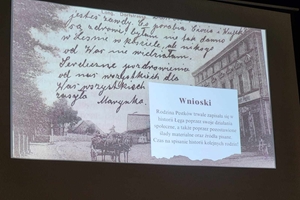 jesteś zawdy. Co porabia Ciocia i Wujek
są zdrowi? byłam nie tak dawno
w Lesznie w kościele, ale nikogo
od Was nie widziałam.
Serdeczne pozdrowienia
od nas wszystkich dla
Was wszystkich
zasyła Marynka.
Wnioski
Rodzina Peników trwale zapisała się w
historii Łąga poprzez swoje działania
społeczne, a także poprzez pozostawione
ślady materialne oraz źródła pisane.
Czas na spisanie historii kolejnych rodzin!